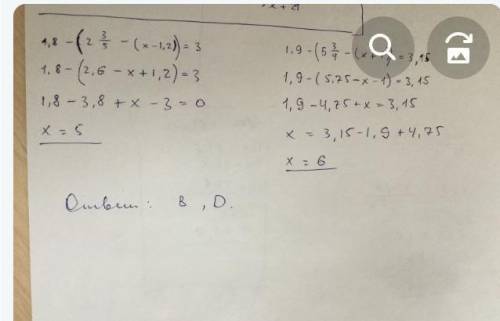 1,8 - (2 3/5 - (x - 1,2)) = 3
1,8 - (2,6 - x + 1,2) = 3
1,8 - 3,8 + x - 3 = 0
x = 5
1,9 - (5 3/4 - (x + 1)) = 3,15
1,9 - (5,75 - x - 1) = 3,15
1,9 - 4,75 + x = 3,15
x = 3,15 - 1,9 + 4,75
x = 6
Ответ: B, D.